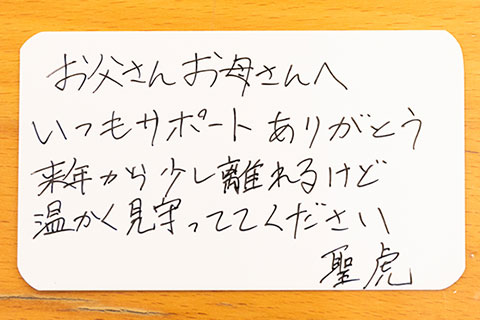 お父さんお母さんへ
いつもサポートありがとう
来年から少し離れるけど
温かく見守っててください
聖虎